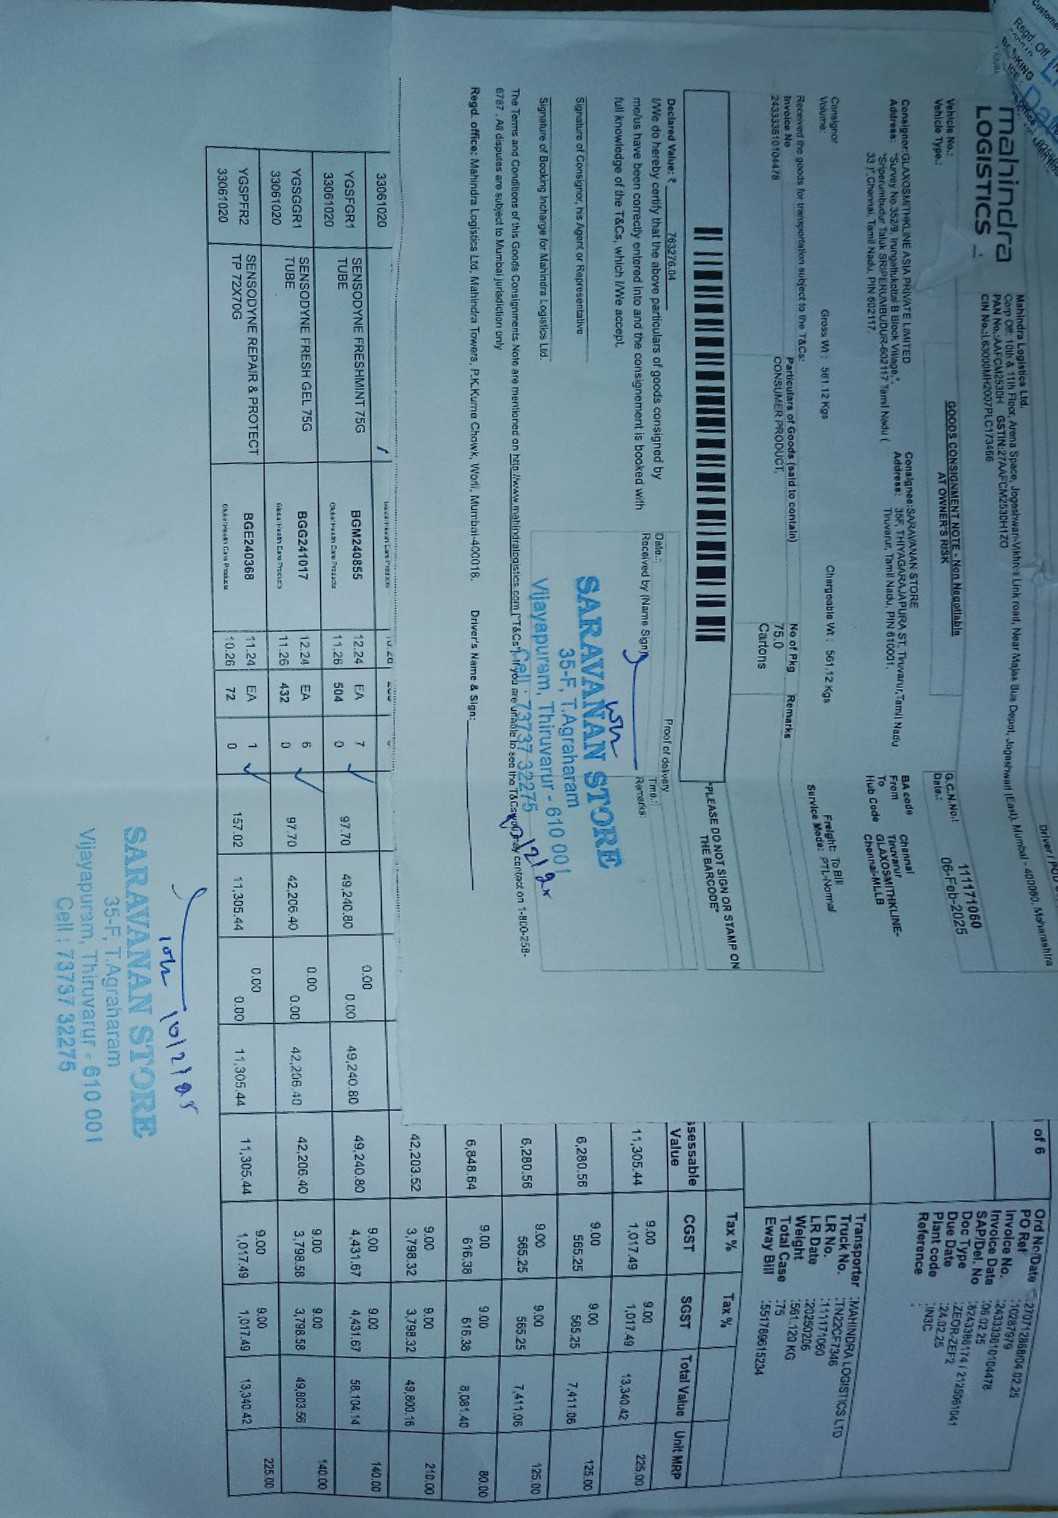 mahindra
LOGISTICS
Mahindra Logistics Ltd.
Corp Off: 10th & 11th Floor, Arena Space, Jogeshwari-Vikhroli Link road, Near Majas Bus Depot, Jogeshwari (East), Mumbai - 400060, Maharashtra
PAN No.:AAFCM2530H GSTIN:27AAFCM2530H1ZO
CIN No.:L63000MH2007PLC173466
GOODS CONSIGNMENT NOTE - Non Negotiable
AT OWNER'S RISK
Vehicle No.:
Vehicle Type.:
G.C.N.No.: 111171060
Date.: 06-Feb-2025
Consignor:GLAXOSMITHKLINE ASIA PRIVATE LIMITED
Address: "Survey No.352/9, Irungattukottai B Block Village,",
"Sriperumbudur Taluk SRIPERUMBUDUR-602117 Tamil Nadu (
33 )", Chennai, Tamil Nadu, PIN 602117.
Consignee:SARAVANAN STORE
Address: 35F, THIYAGARAJAPURA ST, Tiruvarur,Tamil Nadu
Tiruvarur, Tamil Nadu, PIN 610001.
BA code
From Chennai
To Tiruvarur
Hub Code GLAXOSMITHKLINE-
Chennai-MLLB
Consignor
Volume:
Gross Wt : 561.12 Kgs
Chargeable Wt : 561.12 Kgs
Freight: To Bill
Service Mode: PTL-Normal
Received the goods for transportation subject to the T&Cs:
Invoice No
243333610104478
Particulars of Goods (said to contain)
CONSUMER PRODUCT,
No of Pkg
75.0
Cartons
Remarks
"PLEASE DO NOT SIGN OR STAMP ON
THE BARCODE"
Declared Value: ₹ 763276.04
I/We do hereby certify that the above particulars of goods consigned by
me/us have been correctly entered into and the consignement is booked with
full knowledge of the T&Cs, which I/We accept.
Signature of Consignor, his Agent or Representative
Signature of Booking Incharge for Mahindra Logistics Ltd.
Proof of delivery
Date.:
Time.:
Received by (Name Sign)
Remarks:
SARAVANAN STORE
35-F, T.Agraharam
Vijayapuram, Thiruvarur - 610 001
Cell : 73737 32275
The Terms and Conditions of this Goods Consignments Note are mentioned on http://www.mahindralogistics.com ("T&Cs"). If you are unable to see the T&Cs you may contact on 1-800-258-
6787 . All disputes are subject to Mumbai jurisdiction only
Regd. office: Mahindra Logistics Ltd. Mahindra Towers, P.K.Kurne Chowk, Worli, Mumbai-400018. Driver's Name & Sign:
1 of 6
Ord No/Date :270712868/04.02.25
PO Ref :10287979
Invoice No. :243333610104478
Invoice Date :06.02.25
SAP/Del. No
Doc Type :ZEOR-ZEF2
Due Date :24.02.25
Plant code :IN3C
Reference :
Transporter :MAHINDRA LOGISTICS LTD
Truck No. :TN22CF7346
LR No. :111171060
LR Date :20250206
Weight :561.120 KG
Total Case :75
Eway Bill :551769615234
Tax % Tax %
Assessable Value CGST SGST Total Value Unit MRP
11,305.44 9.00 1,017.49 9.00 1,017.49 13,340.42 225.00
6,280.56 9.00 565.25 9.00 565.25 7,411.06 125.00
6,280.56 9.00 565.25 9.00 565.25 7,411.06 125.00
6,848.64 9.00 616.38 9.00 616.38 8,081.40 80.00
33061020 42,203.52 9.00 3,798.32 9.00 3,798.32 49,800.16 210.00
YGSFGR1 SENSODYNE FRESHMINT 75G BGM240855 12.24 EA 7 97.70 49,240.80 0.00 49,240.80 49,240.80 9.00 9.00 58,104.14 140.00
33061020 TUBE Global Health Care Products 11.26 504 0 0.00 4,431.67 4,431.67
YGSGGR1 SENSODYNE FRESH GEL 75G BGG241017 12.24 EA 6 97.70 42,206.40 0.00 42,206.40 42,206.40 9.00 9.00 49,803.56 140.00
33061020 TUBE Global Health Care Products 11.26 432 0 0.00 3,798.58 3,798.58
YGSPFR2 SENSODYNE REPAIR & PROTECT BGE240368 11.24 EA 1 157.02 11,305.44 0.00 11,305.44 11,305.44 9.00 9.00 13,340.42 225.00
33061020 TP 72X70G Global Health Care Products 10.26 72 0 0.00 1,017.49 1,017.49
10/2/25
SARAVANAN STORE
35-F, T.Agraharam
Vijayapuram, Thiruvarur - 610 001
Cell : 73737 32275